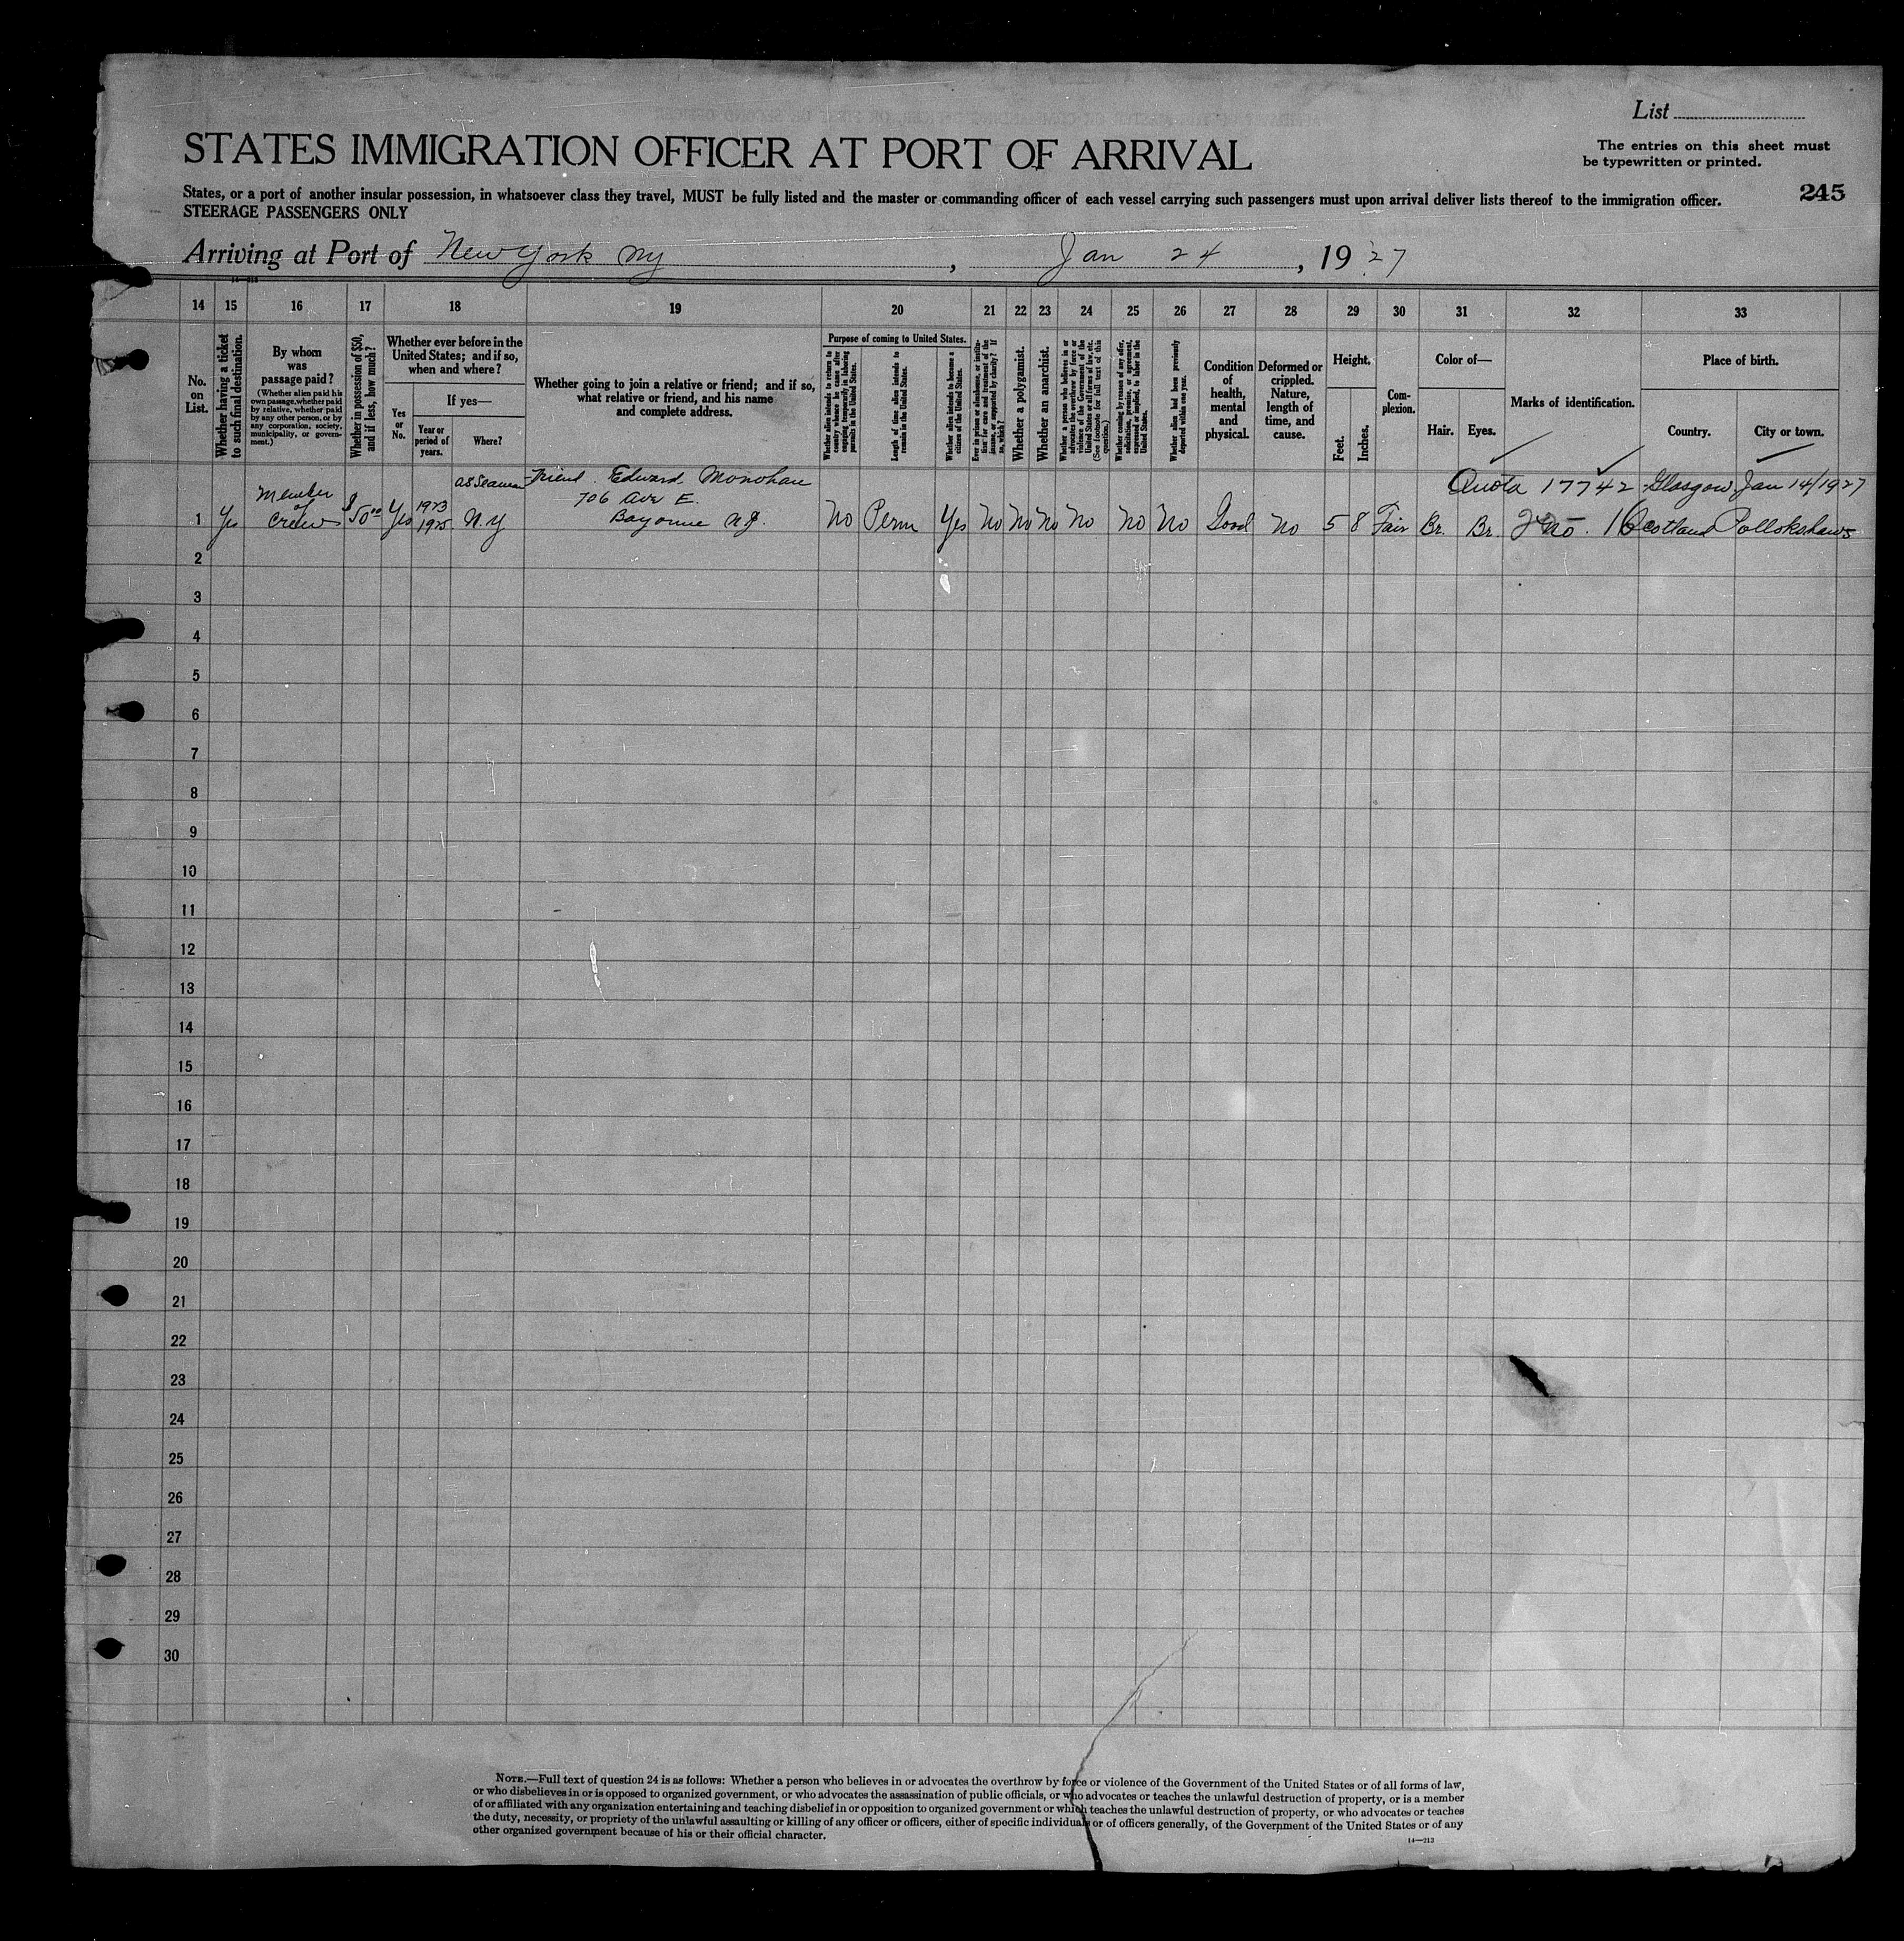 List
The entries on this sheet must
be typewritten or printed.
STATES IMMIGRATION OFFICER AT PORT OF ARRIVAL
245
States, or a port of another insular possession, in whatsoever class they travel, MUST be fully listed and the master or commanding officer of each vessel carrying such passengers must upon arrival deliver lists thereof to the immigration officer.
STEERAGE PASSENGERS ONLY
Arriving at Port of New York NY, Jan 24, 1927
14 15 16 17 18 19 20 21 22 23 24 25 26 27 28 29 30 31 32 33
No. on List.
Whether having a ticket to such final destination.
By whom was passage paid?
(Whether alien paid his own passage, whether paid by relative, whether paid by any other person, or by any corporation, society, municipality, or government.)
Whether in possession of $50, and if less, how much?
Whether ever before in the United States; and if so, when and where?
Yes or No.
If yes—
Year or period of years.
Where?
Whether going to join a relative or friend; and if so, what relative or friend, and his name and complete address.
Purpose of coming to United States.
Whether alien intends to return to country whence he came after engaging temporarily in laboring pursuits in the United States.
Length of time alien intends to remain in the United States.
Whether alien intends to become a citizen of the United States.
Ever in prison or almshouse, or institution for care and treatment of the insane, or supported by charity? If so, which?
Whether a polygamist.
Whether an anarchist.
Whether a person who believes in or advocates the overthrow by force or violence of the Government of the United States or all forms of law, etc. (See footnote for full text of this question.)
Whether coming by reason of any offer, solicitation, promise, or agreement, expressed or implied, to labor in the United States.
Whether alien had been previously deported within one year.
Condition of health, mental and physical.
Deformed or crippled. Nature, length of time, and cause.
Height.
Feet. Inches.
Complexion.
Color of—
Hair. Eyes.
Marks of identification.
Place of birth.
Country. City or town.
as Seaman Friend. Edward Monohan Quota 17742 Glasgow Jan 14/1927
Member of 706 Ave E.
1 Yes Crew $50.00 Yes 1923 1925 N.Y Bayonne N.J. No Perm Yes No No No No No No Good No 5 8 Fair Br. Br. Scotland Pollokshaws
2
3
4
5
6
7
8
9
10
11
12
13
14
15
16
17
18
19
20
21
22
23
24
25
26
27
28
29
30
NOTE.—Full text of question 24 is as follows: Whether a person who believes in or advocates the overthrow by force or violence of the Government of the United States or of all forms of law,
or who disbelieves in or is opposed to organized government, or who advocates the assassination of public officials, or who advocates or teaches the unlawful destruction of property, or is a member
of or affiliated with any organization entertaining and teaching disbelief in or opposition to organized government or which teaches the unlawful destruction of property, or who advocates or teaches
the duty, necessity, or propriety of the unlawful assaulting or killing of any officer or officers, either of specific individuals or of officers generally, of the Government of the United States or of any
other organized government because of his or their official character.
14—213